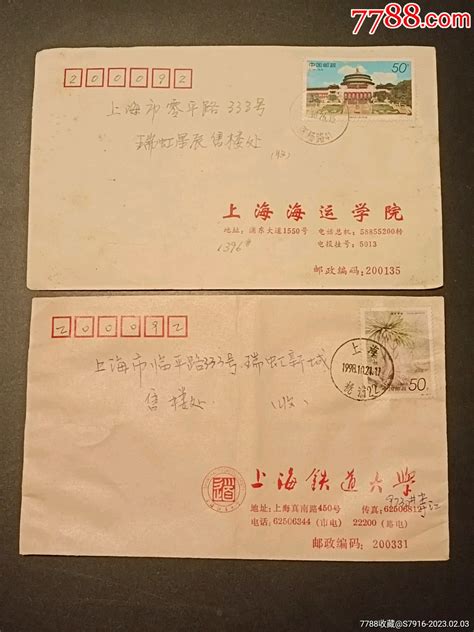 7788.com
中国邮政
50分
200092
上海市零平路333号
瑞虹星辰售楼处
(收)
上海海运学院
地址:浦东大道1550号 电话总机:58855200转
电投挂号:5913
1396#
邮政编码:200135
200092
上海市临平路333号.瑞虹新城
售楼处 (收)
上海
1998.10.21.17
50分
上海铁道大学
地址:上海真南路450号 传真:62506812
电话:62506344(市电) 22200(路电)
邮政编码:200331
7788收藏@S7916-2023.02.03